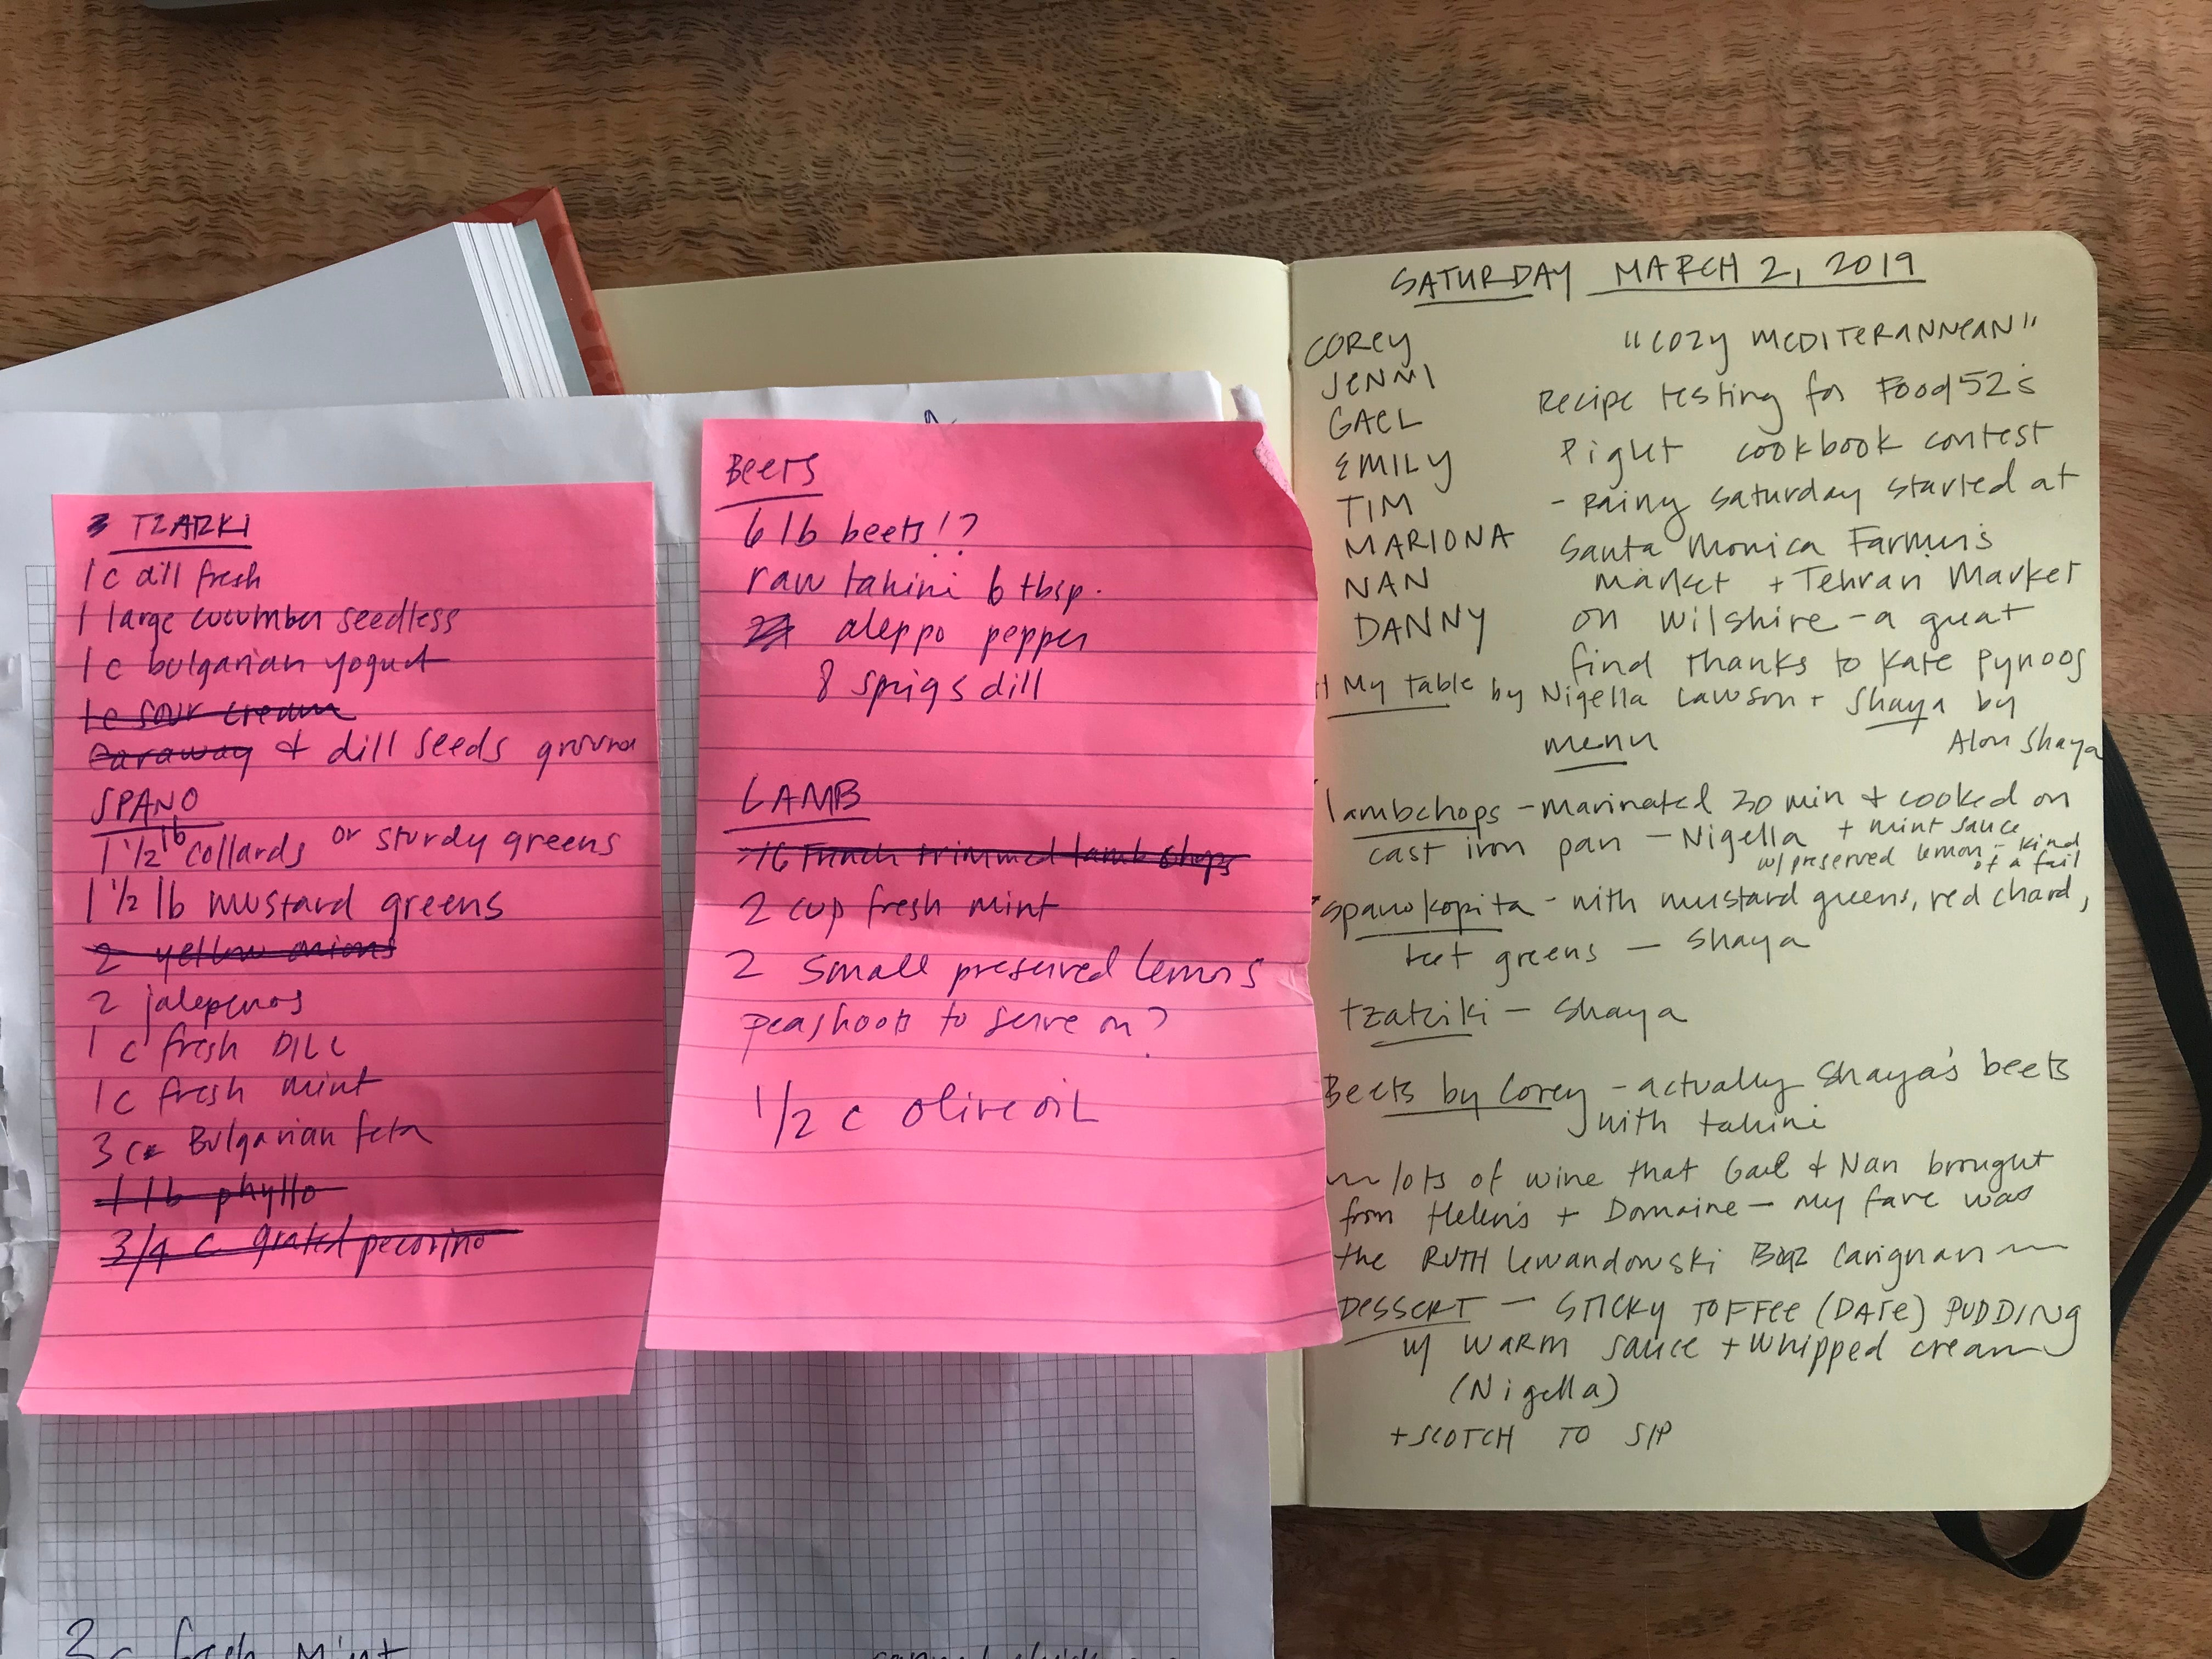 TZATZKI
1 c dill fresh
1 large cucumber seedless
1 c bulgarian yogurt
1 c sour cream
caraway + dill seeds ground
SPANO
1 1/2 lb collards or sturdy greens
1 1/2 lb mustard greens
2 yellow onions
2 jalepenos
1 c fresh DILL
1 c fresh mint
3 c Bulgarian feta
1 lb phyllo
3/4 c grated pecorino
Beets
6 lb beets!?
raw tahini 6 tbsp.
aleppo pepper
8 sprigs dill
LAMB
16 French trimmed lamb chops
2 cup fresh mint
2 small preserved lemons
peashoots to serve on?
1/2 c olive oil
3 c fresh mint
SATURDAY MARCH 2, 2019
COREY
JENNI
GAEL
EMILY
TIM
MARIONA
NAN
DANNY
"COZY MEDITERANNEAN"
Recipe testing for Food52's
Piglet cookbook contest
- Rainy Saturday started at
Santa Monica Farmers
market + Tehran Market
on Wilshire - a great
find thanks to Kate Pynoos
At My table by Nigella Lawson + Shaya by
Alon Shaya
menu
lambchops - marinated 30 min + cooked on
cast iron pan - Nigella + mint sauce
w/ preserved lemon - kind
of a fail
spanokopita - with mustard greens, red chard,
beet greens - Shaya
tzatziki - Shaya
Beets by Corey - actually Shaya's beets
with tahini
~ lots of wine that Gael + Nan brought
from Helen's + Domaine - my fave was
the RUTH Lewandowski Carignan ~
DESSERT - STICKY TOFFEE (DATE) PUDDING
w/ WARM sauce + whipped cream
(Nigella)
+ SCOTCH TO SIP